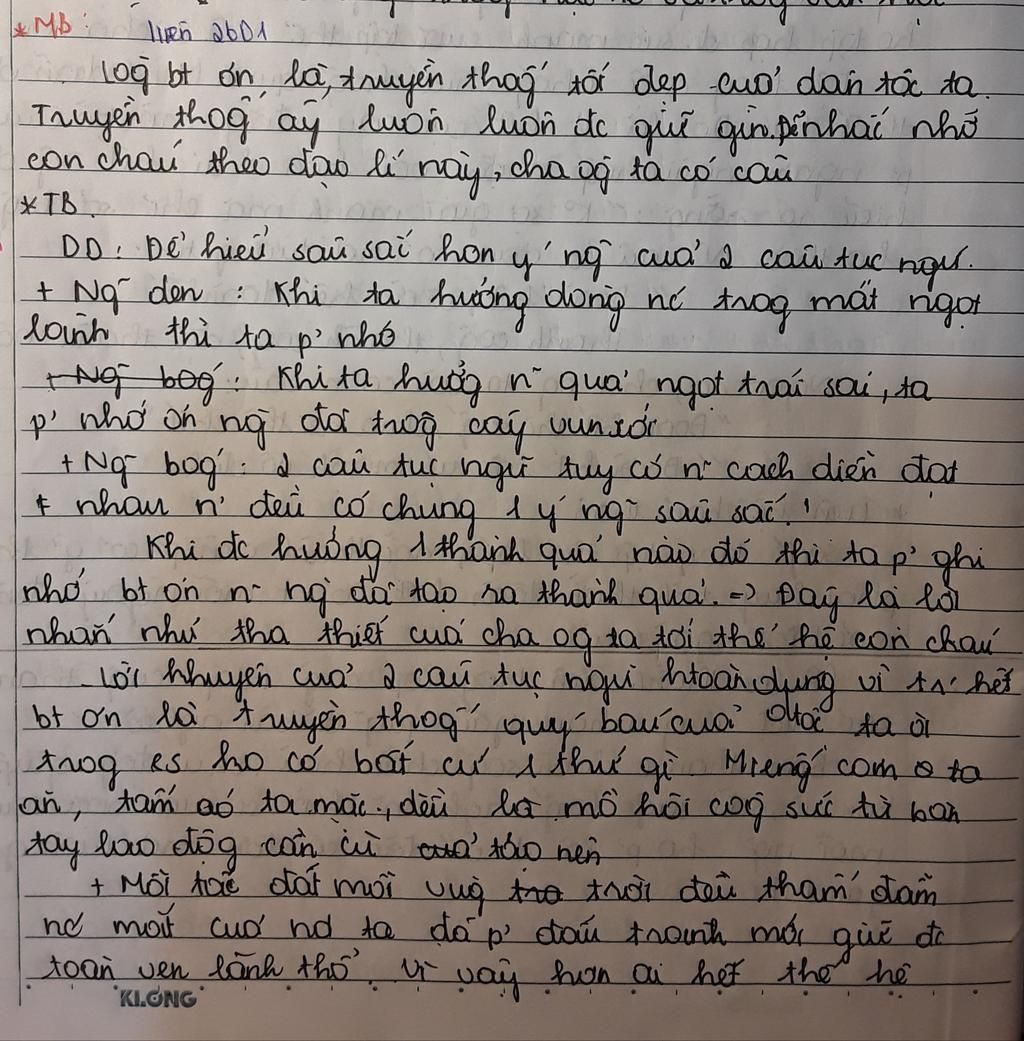 *MB: liên 2bD1
Lòg bt ơn là truyền thốg tốt đẹp của dân tộc ta.
Truyền thốg ấy luôn luôn đc giữ gìn. Để nhắc nhở
con cháu theo đạo lí này, cha ôg ta có câu
*TB.
DD: Để hiểu sâu sắc hơn ý ng~ của 2 câu tục ngữ.
+ Ng~ đen: Khi ta hưởng dòng nc trog mát ngọt
lành thì ta p' nhớ
Khi ta hưởg n~ quả ngọt trái sai, ta
p' nhớ ơn ng` đã trồg cây vun xới
+ Ng~ bóg: 2 câu tục ngữ tuy có n~ cách diễn đạt
≠ nhau n' đều có chung 1 ý ng~ sâu sắc.
Khi đc hưởng 1 thành quả nào đó thì ta p' ghi
nhớ bt ơn n~ ng` đã tạo ra thành quả. => Đây là lời
nhắn nhủ tha thiết của cha ôg ta tới thế hệ con cháu
Lời khuyên của 2 câu tục ngữ htoàn đúng vì tr' hết
bt ơn là truyền thốg quý báu của ta
trog có bất cứ 1 thứ gì Miếng cơm ta
ăn, tấm áo ta mặc, đều là mồ hôi côg sức từ bàn
tay lao độg cần cù tạo nên
+ Mỗi tấc đất mỗi vùg trời đều thấm đẫm
nc mắt của nd ta đã p' đấu tranh mới giữ đc
toàn vẹn lãnh thổ. Vì vậy hơn ai hết thế hệ
KLONG